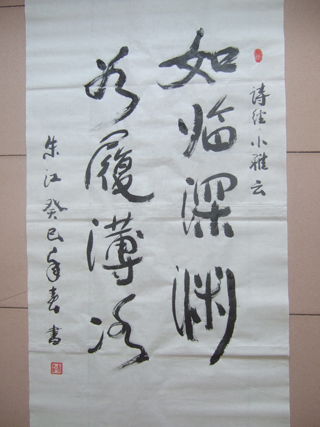 詩经·小雅云
如临深渊
若履薄冰
朱江癸巳年春書